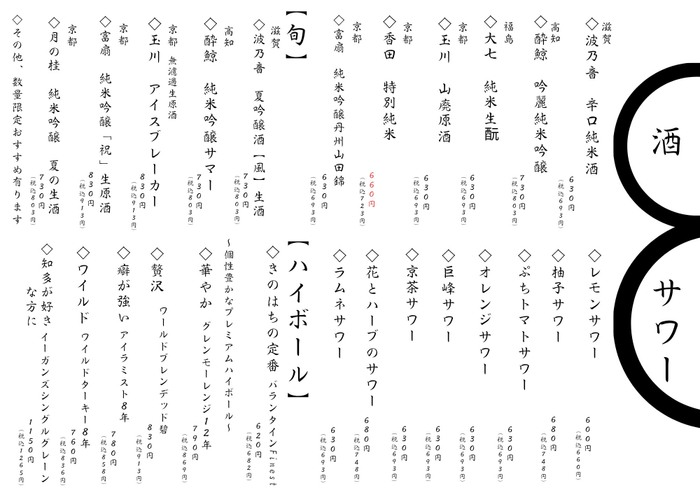 酒
滋賀
◇波乃音 辛口純米酒
630円
(税込693円)
高知
◇酔鯨 吟麗純米吟醸
730円
(税込803円)
福島
◇大七 純米生酛
630円
(税込693円)
京都
◇玉川 山廃原酒
630円
(税込693円)
京都
◇香田 特別純米
660円
(税込723円)
京都
◇富扇 純米吟醸丹州山田錦
630円
(税込693円)
【旬】
滋賀
◇波乃音 夏吟醸酒【風】生酒
730円
(税込803円)
高知
◇酔鯨 純米吟醸サマー
730円
(税込803円)
京都 無濾過生原酒
◇玉川 アイスブレーカー
830円
(税込913円)
京都
◇富扇 純米吟醸「祝」生原酒
830円
(税込913円)
京都
◇月の桂 純米吟醸 夏の生酒
730円
(税込803円)
◇その他、数量限定おすすめ有ります
サワー
◇レモンサワー
600円
(税込660円)
◇柚子サワー
680円
(税込748円)
◇ぷちトマトサワー
630円
(税込693円)
◇オレンジサワー
630円
(税込693円)
◇巨峰サワー
630円
(税込693円)
◇京茶サワー
630円
(税込693円)
◇花とハーブのサワー
680円
(税込748円)
◇ラムネサワー
630円
(税込693円)
【ハイボール】
◇きのはちの定番 バランタインFinest
620円
(税込682円)
~個性豊かなプレミアムハイボール~
◇華やか グレンモーレンジ12年
790円
(税込869円)
◇贅沢 ワールドブレンデッド碧
830円
(税込913円)
◇癖が強い アイラミスト8年
780円
(税込858円)
◇ワイルド ワイルドターキー8年
760円
(税込836円)
◇知多が好きな方に イーガンズシングルグレーン
1150円
(税込1265円)